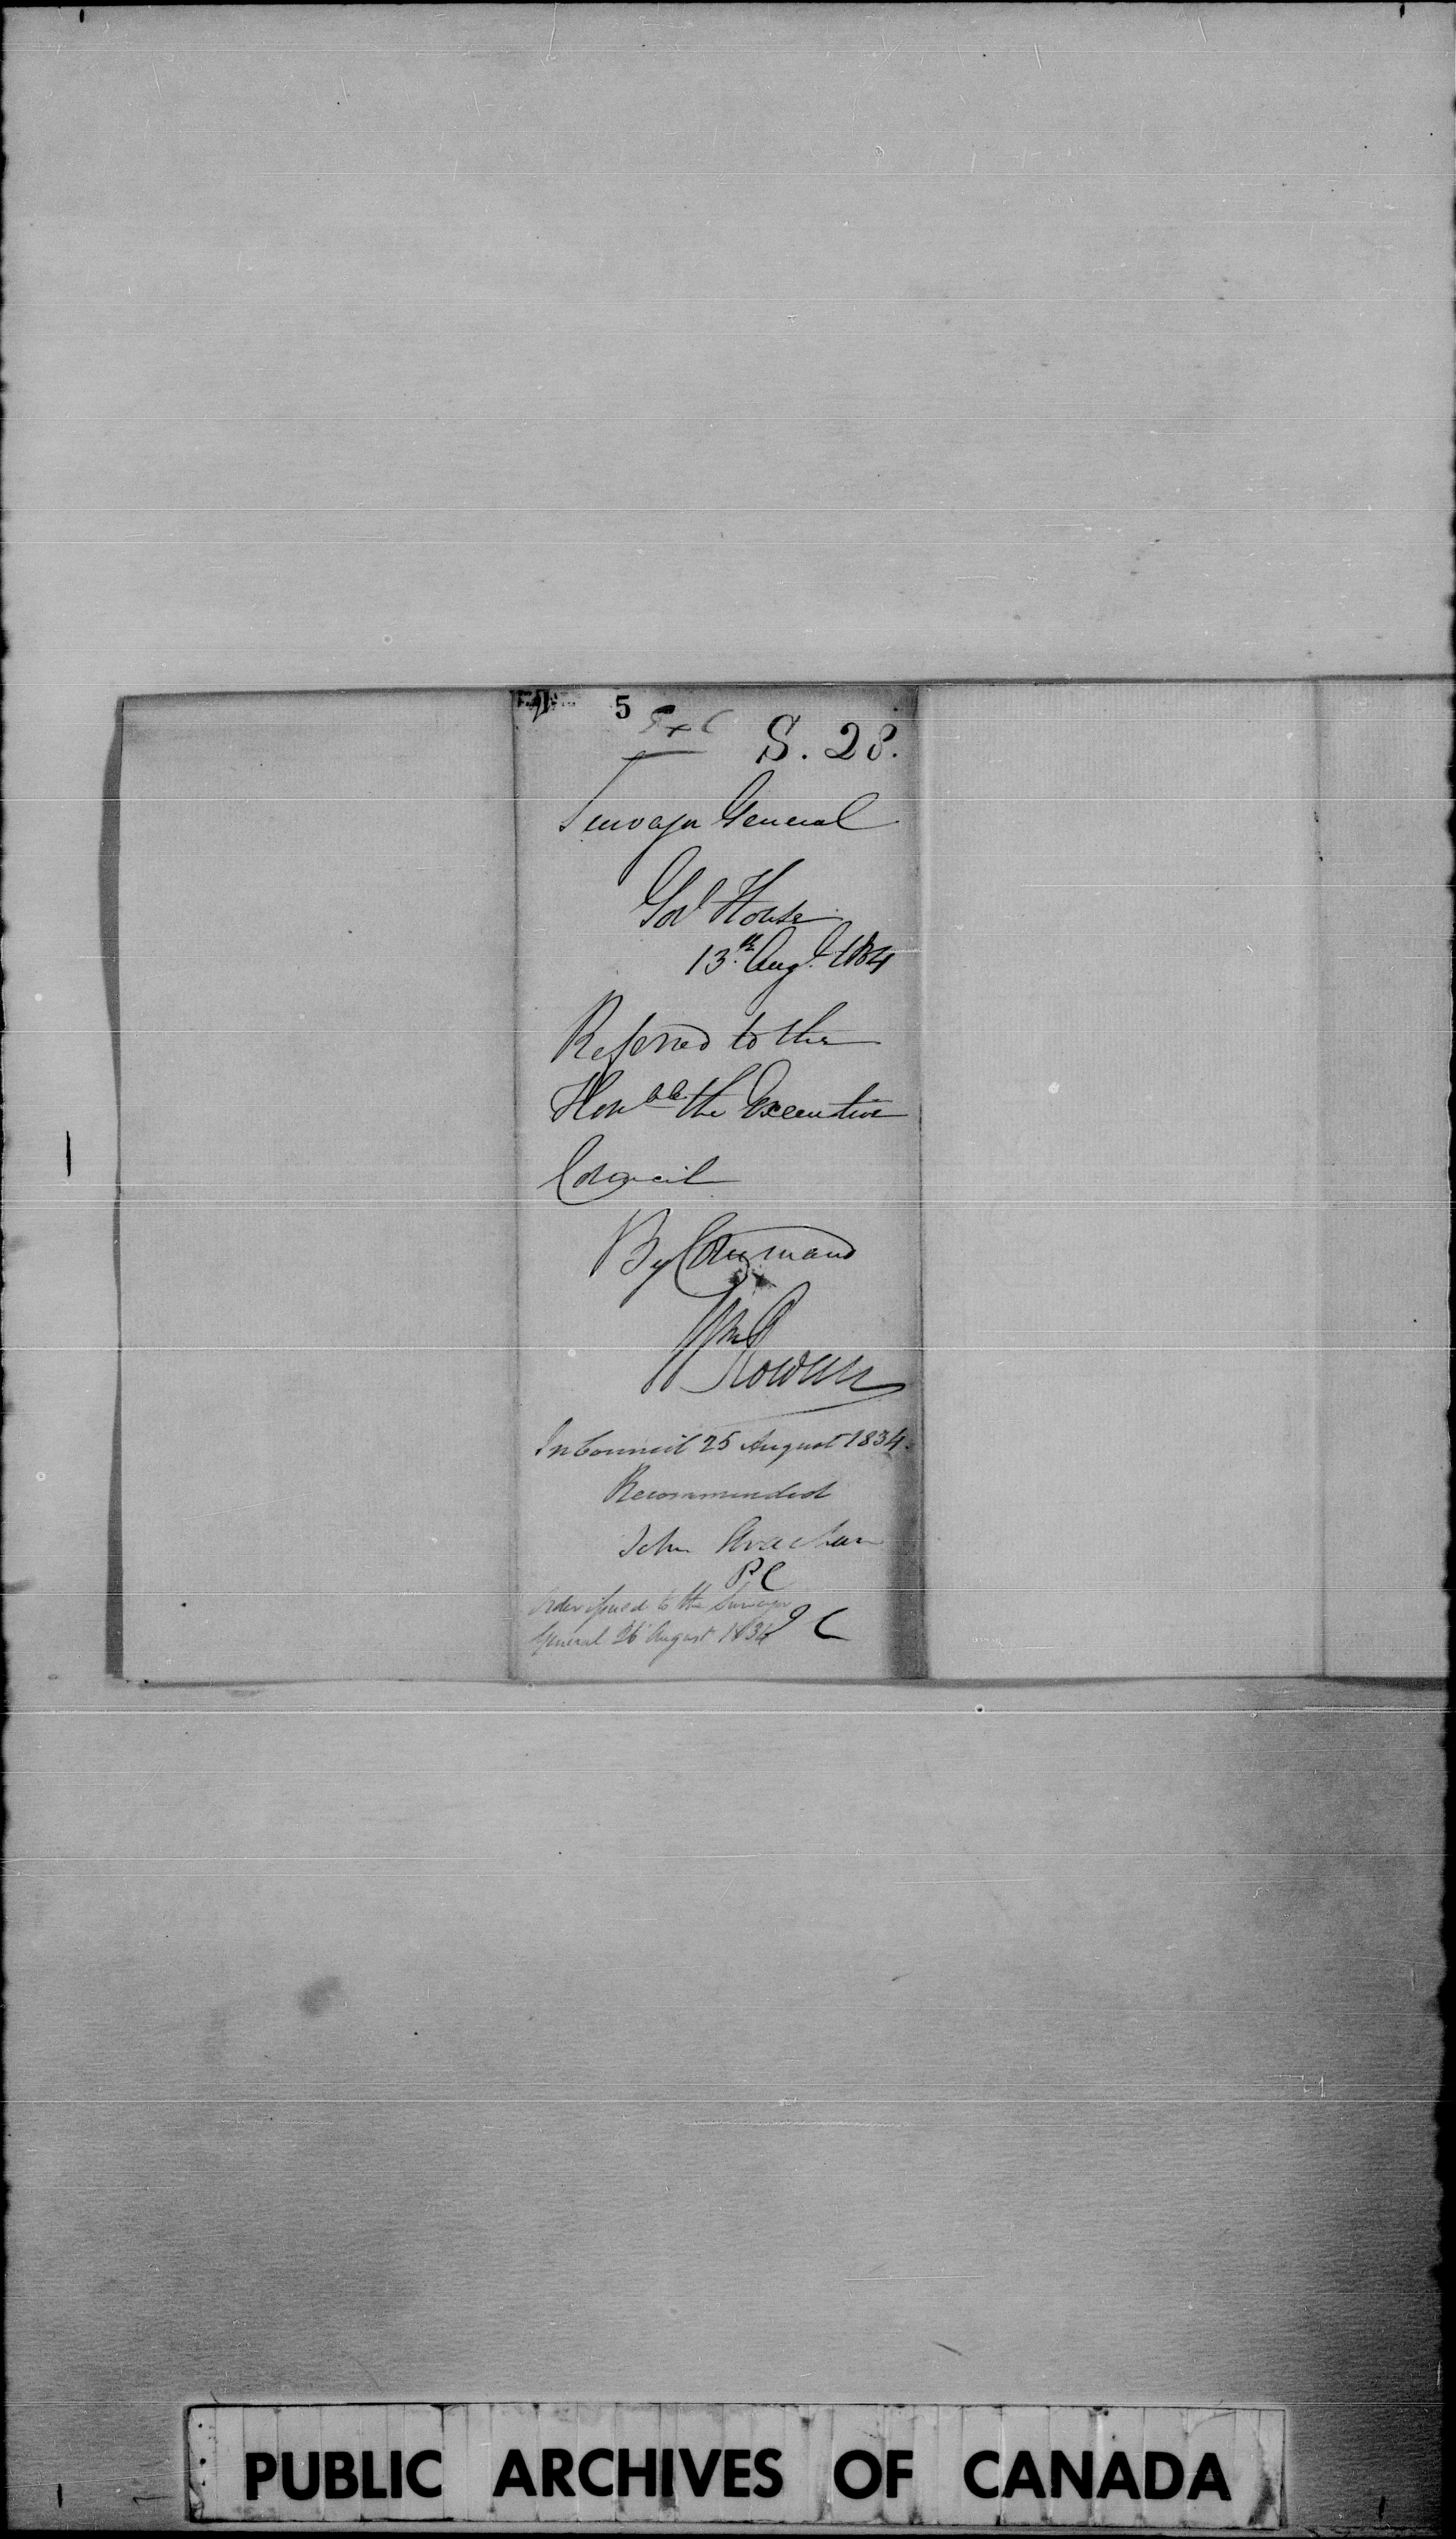 5
Ex C
S. 28.
Surveyor General
Gov.t House
13.th Aug.t 1834
Referred to the
Hon.ble the Executive
Council
By Command
Wm Rowan
In Council 25 August 1834.
Recommended
John Strachan
P C
Order issued to the Surveyor
General 26 August 1834
J C
PUBLIC ARCHIVES OF CANADA